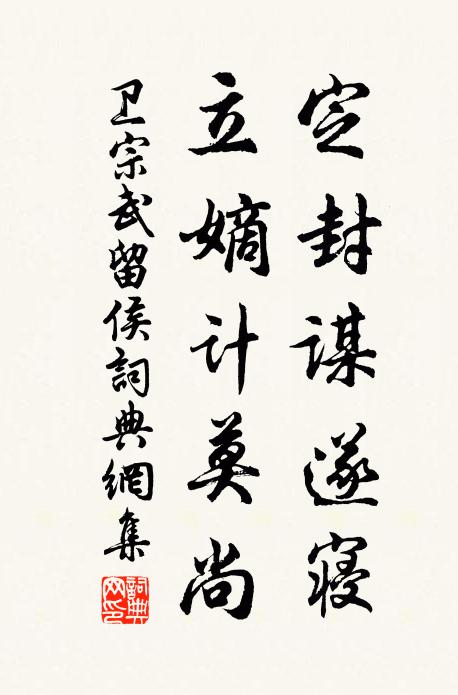 定封谋遂寝
立嫡计莫尚
卫宗武留侯詞典網集
詞典网印